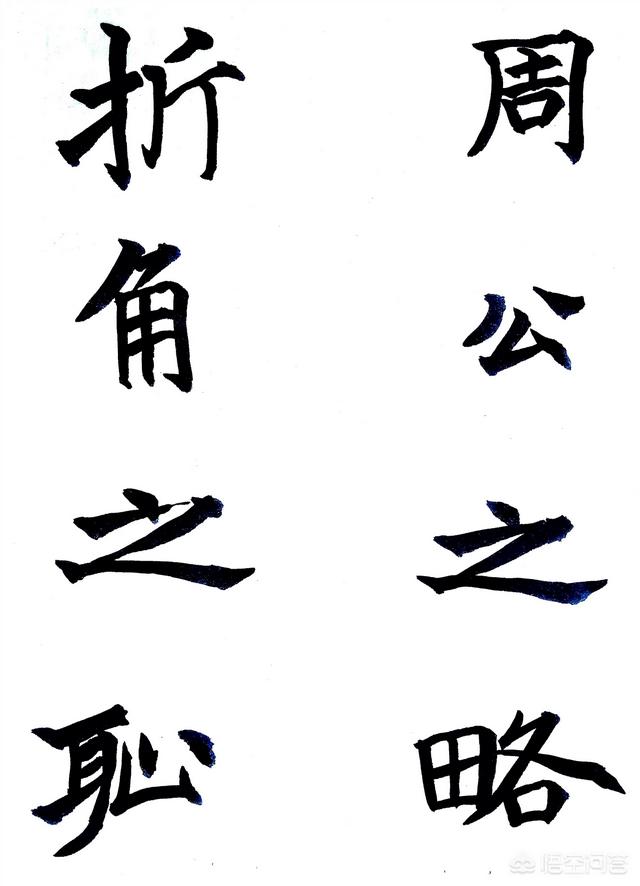 周公之略
折角之恥
悟空问答